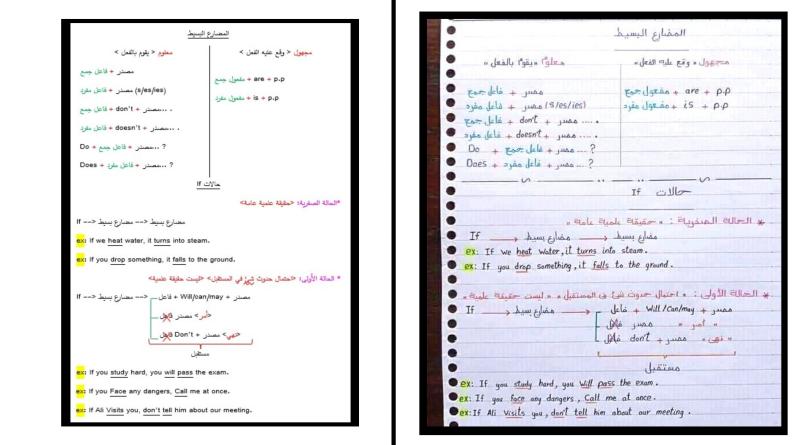 المضارع البسيط
معلوم < يقوم بالفعل >
مجهول < وقع عليه الفعل >
فاعل جمع + مصدر
فاعل مفرد + مصدر (s/es/ies)
فاعل جمع + don't + مصدر... .
فاعل مفرد + doesn't + مصدر... .
Do + فاعل جمع + مصدر... ?
Does + فاعل مفرد + مصدر... ?
مفعول جمع + are + p.p
مفعول مفرد + is + p.p
حالات If
*الحالة الصفرية: <حقيقة علمية عامة>
If --> مضارع بسيط --> مضارع بسيط
ex: If we heat water, it turns into steam.
ex: If you drop something, it falls to the ground.
* الحالة الأولى: <احتمال حدوث شئ في المستقبل> <ليست حقيقة علمية>
If --> مضارع بسيط --> فاعل + Will/can/may + مصدر
فاعل مصدر <أمر>
فاعل Don't + مصدر <نهي>
مستقبل
ex: If you study hard, you will pass the exam.
ex: If you Face any dangers, Call me at once.
ex: If Ali Visits you, don't tell him about our meeting.
المضارع البسيط
معلوم "يقوم بالفعل"
مجهول "وقع عليه الفعل"
فاعل جمع + مصدر
فاعل مفرد + مصدر (s/es/ies)
فاعل جمع + don't + مصدر ....
فاعل مفرد + doesn't + مصدر ....
Do + فاعل جمع + مصدر ... ?
Does + فاعل مفرد + مصدر ... ?
مفعول جمع + are + p.p
مفعول مفرد + is + p.p
حالات If
* الحالة الصفرية: "حقيقة علمية عامة"
If → مضارع بسيط → مضارع بسيط
ex: If we heat water, it turns into steam.
ex: If you drop something, it falls to the ground.
* الحالة الأولى: "احتمال حدوث شئ في المستقبل" "ليست حقيقة علمية"
If → مضارع بسيط → فاعل + Will/Can/may + مصدر
فاعل مصدر "أمر"
فاعل don't + مصدر "نهي"
مستقبل
ex: If you study hard, you will pass the exam.
ex: If you face any dangers, Call me at once.
ex: If Ali Visits you, don't tell him about our meeting.